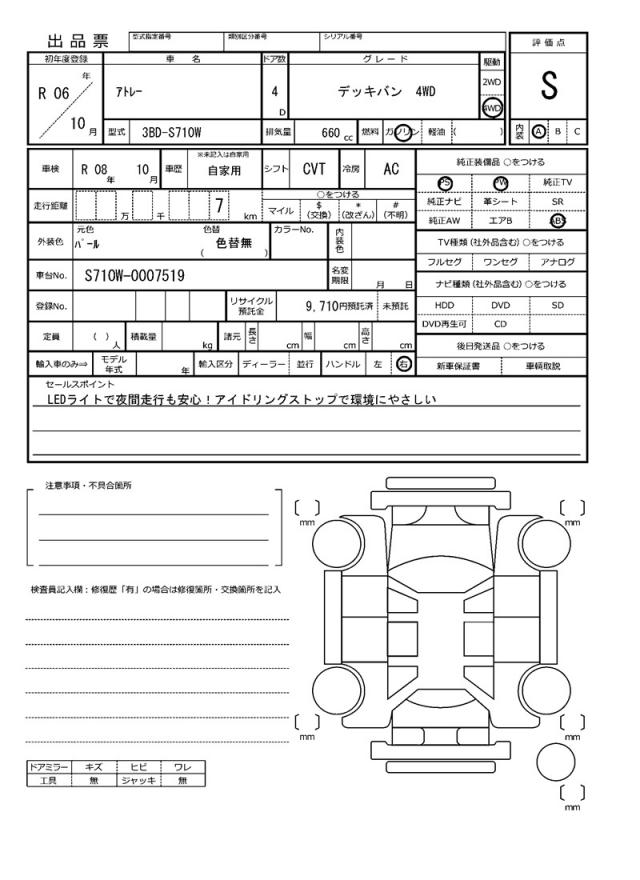 出品票 型式指定番号 類別区分番号 シリアル番号
評価点
初年度登録 車名 ドア数 グレード 駆動
R 06 年 アトレー 4 D デッキバン 4WD 2WD S
4WD
10 月 型式 3BD-S710W 排気量 660 cc 燃料 ガソリン 軽油 ( ) 内装 A B C
車検 R 08 年 10 月 車歴 ※未記入は自家用 自家用 シフト CVT 冷房 AC 純正装備品 ○をつける
PS PW 純正TV
走行距離 万 千 7 km ○をつける 純正ナビ 革シート SR
マイル $ (交換) * (改ざん) # (不明) 純正AW エアB ABS
外装色 元色 パール 色替 色替無 ( ) カラーNo. 内装色 TV種類 (社外品含む) ○をつける
フルセグ ワンセグ アナログ
車台No. S710W-0007519 名変期限 月 日 ナビ種類 (社外品含む) ○をつける
登録No. リサイクル預託金 9,710円預託済 未預託 HDD DVD SD
DVD再生可 CD
定員 ( ) 人 積載量 kg 諸元 長さ cm 幅 cm 高さ cm 後日発送品 ○をつける
輸入車のみ⇒ モデル年式 年 輸入区分 ディーラー 並行 ハンドル 左 右 新車保証書 車輌取説
セールスポイント
LEDライトで夜間走行も安心！アイドリングストップで環境にやさしい
注意事項・不具合箇所
mm mm
検査員記入欄：修復歴「有」の場合は修復箇所・交換箇所を記入
mm mm
ドアミラー キズ ヒビ ワレ
工具 無 ジャッキ 無
mm